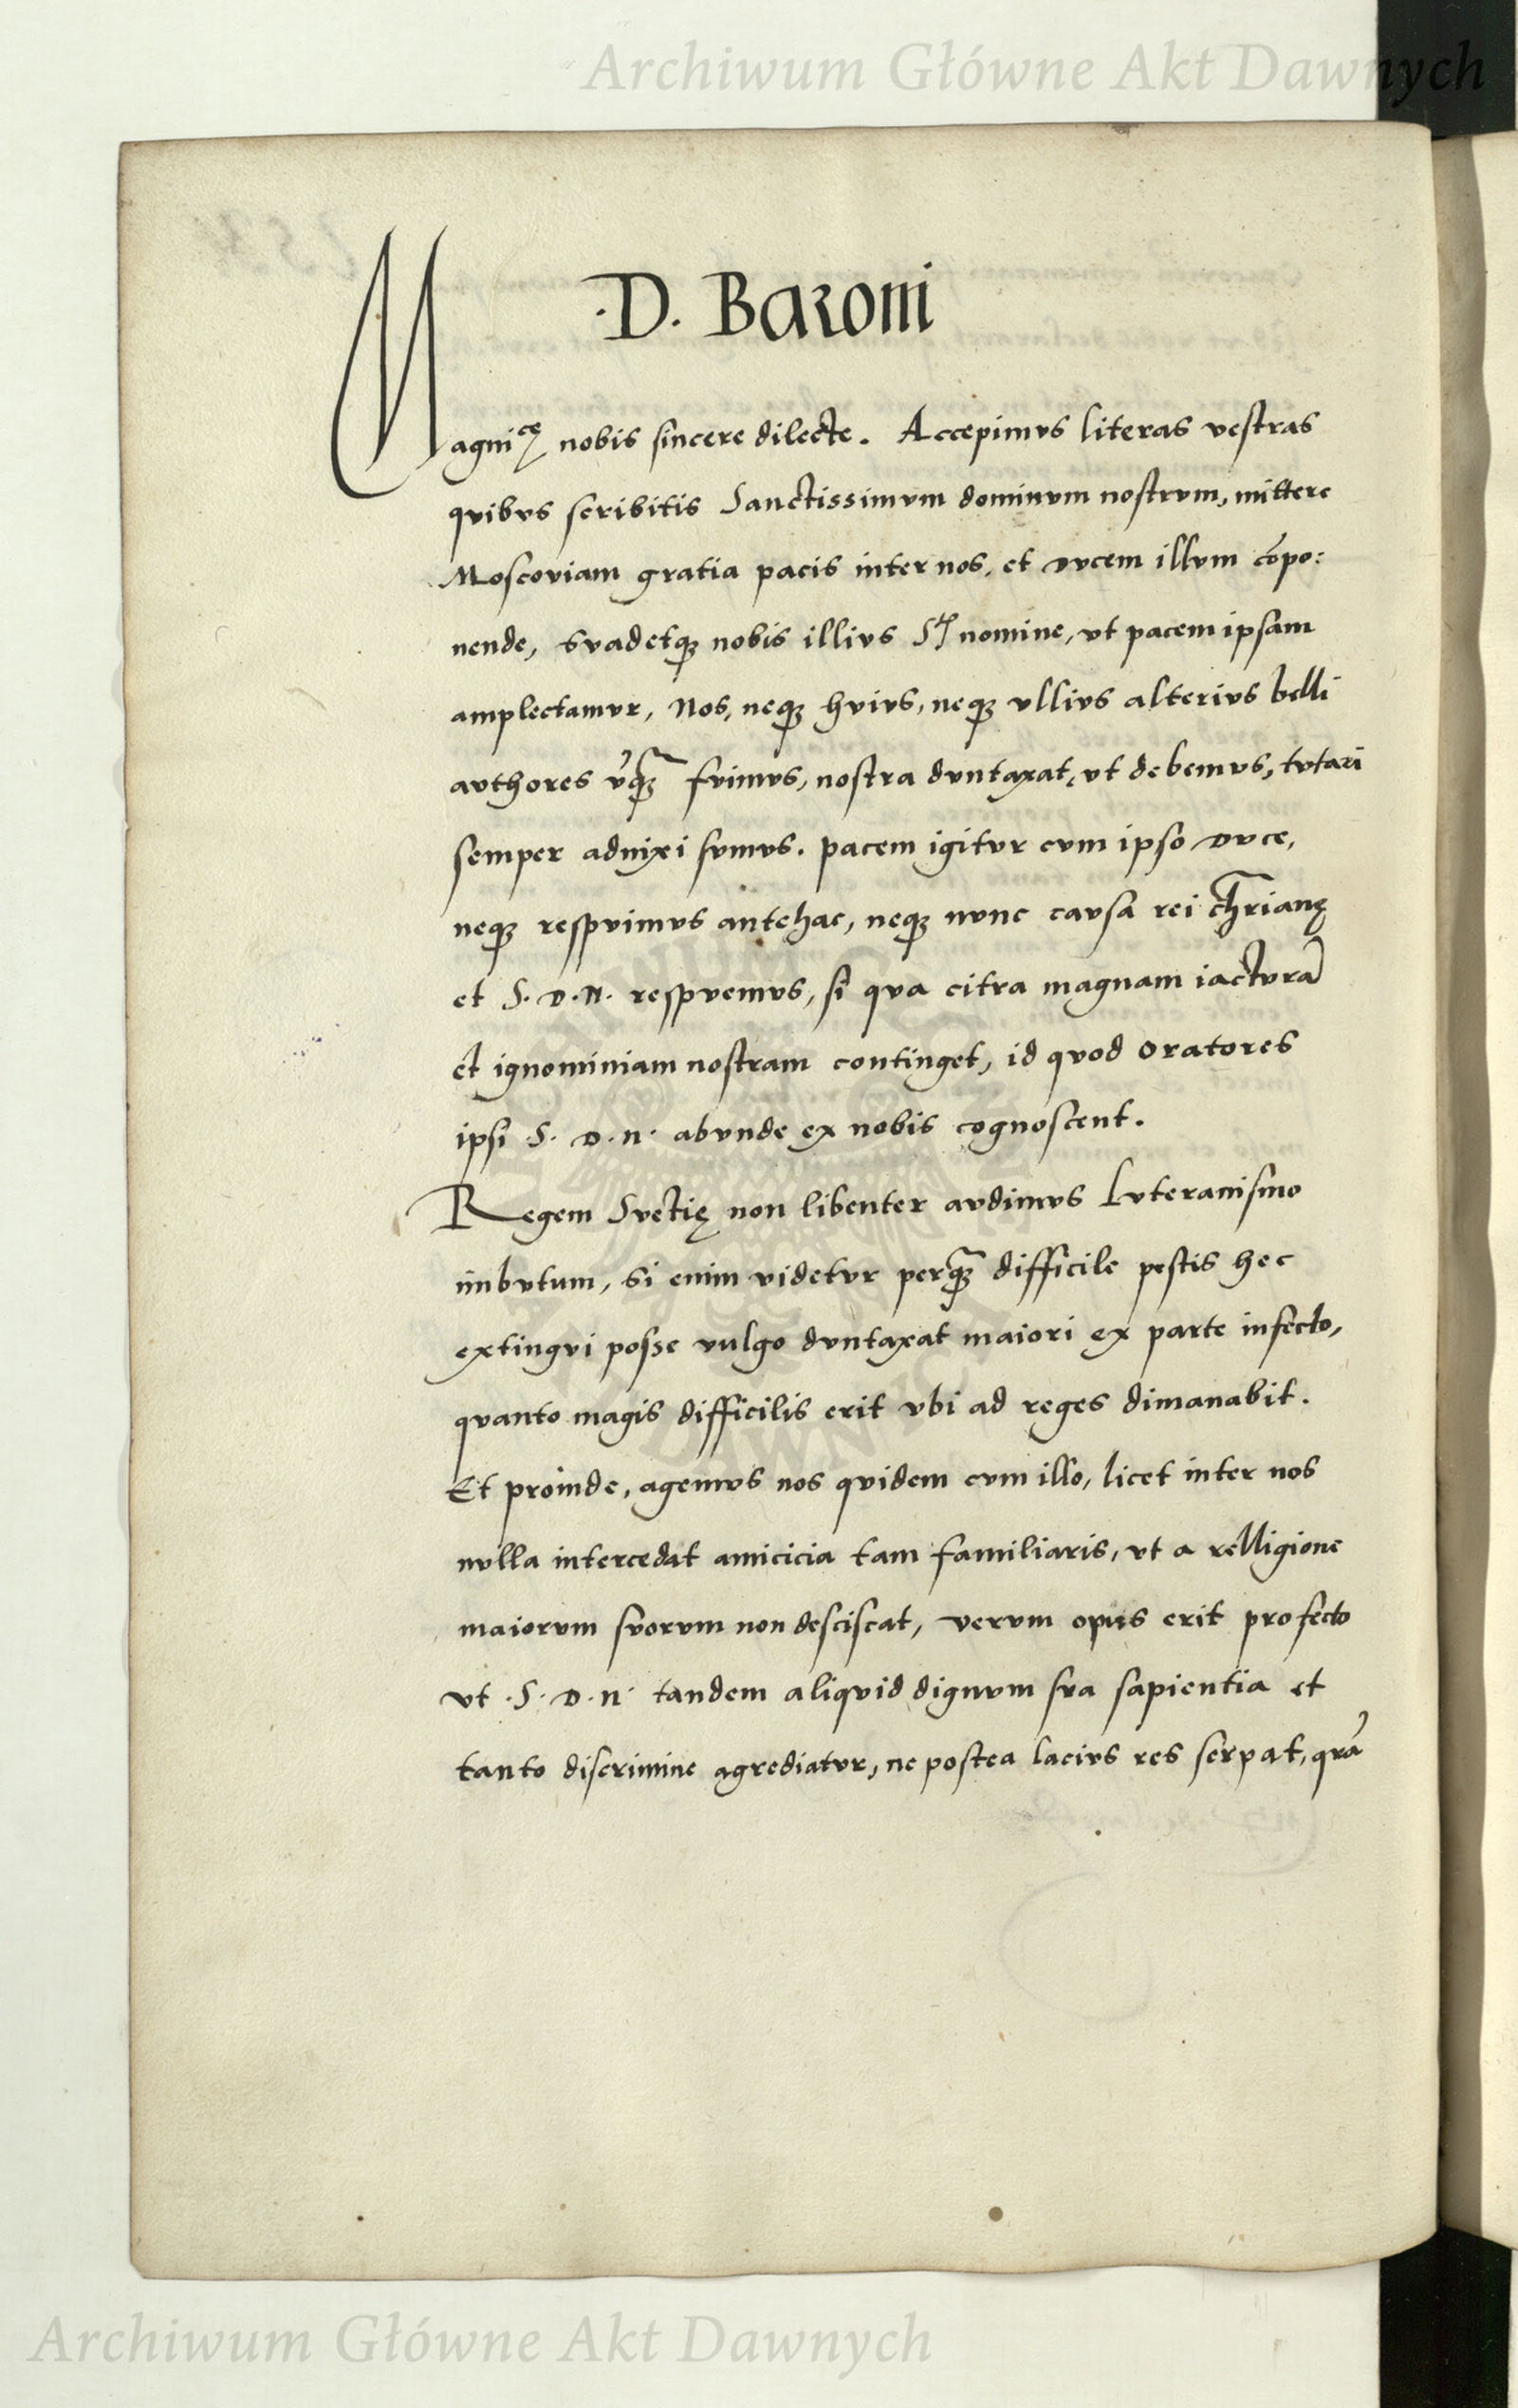 Archiwum Główne Akt Dawnych
·D. Baroni
Magnicę nobis sincere dilecte. Accepimvs literas vestras
qvibvs scribitis Sanctissimvm dominvm nostrvm, mittere
Moscoviam gratia pacis inter nos, et dvcem illvm cōpo:
nende, svadetqꝫ nobis illivs Stis nomine, vt pacem ipsam
amplectamvr, Nos, neqꝫ hvivs, neqꝫ vllivs alterivs belli
avthores fvimvs, nostra dvntaxat, vt debemvs, tvtari
semper adnixi svmvs. pacem igitvr cvm ipso dvce,
neqꝫ respvimvs antehac, neqꝫ nvnc cavsa rei chrīanę
et S. D. N. respvemvs, si qva citra magnam iactvrā
et ignominiam nostram continget, id qvod oratores
ipsi S. D. N. abvnde ex nobis cognoscent.
Regem Svetię non libenter avdimvs Lvteranismo
imbvtum, si enim videtvr perqꝫ̄ difficile pestis hec
extingvi posse vulgo dvntaxat maiori ex parte infecto,
qvanto magis difficilis erit vbi ad reges dimanabit.
Et proinde, agemvs nos qvidem cvm illo, licet inter nos
nvlla intercedat amicicia tam familiaris, vt a relligione
maiorvm svorvm non desciscat, vervm opus erit profecto
vt ·S· D. N· tandem aliqvid dignvm sva sapientia et
tanto discrimine agrediatvr, ne postea lacivs res serpat, qrā
Archiwum Główne Akt Dawnych